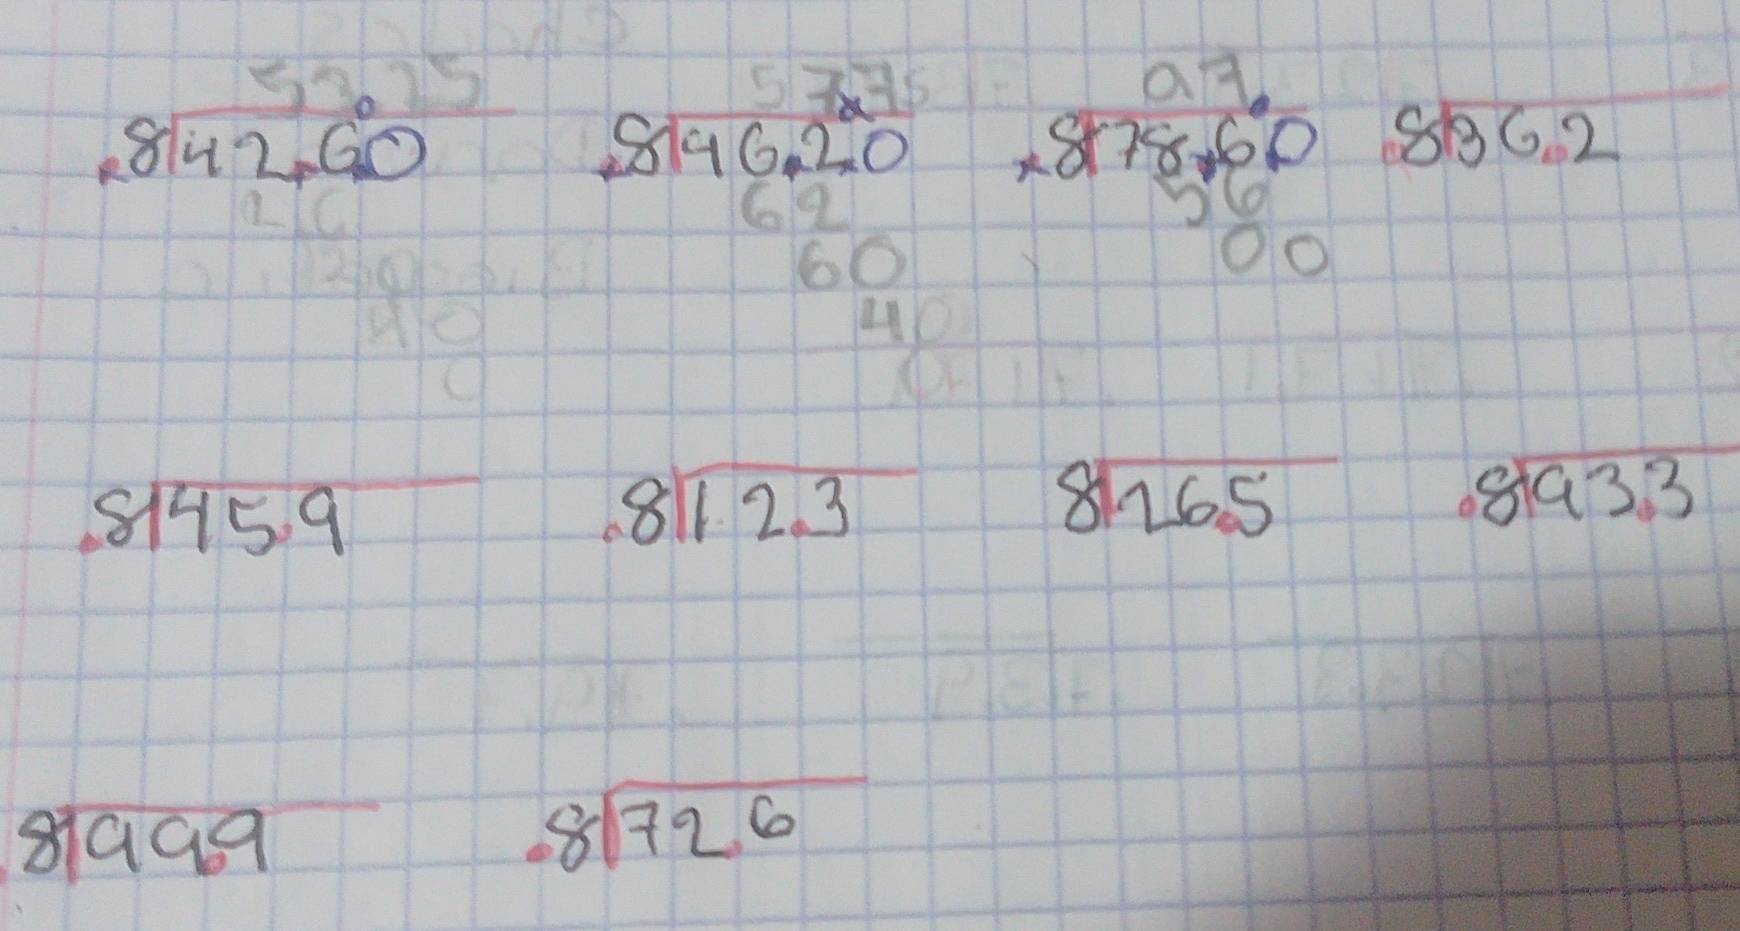 53.25 57.75 97.
.8 42.60 .8 46.20 .8 78.60 .8 36.2
26 62 56
20 60 00
40 40
0 0
.8 45.9 .8 12.3 8 26.5 .8 93.3
.8 99.9 .8 72.6